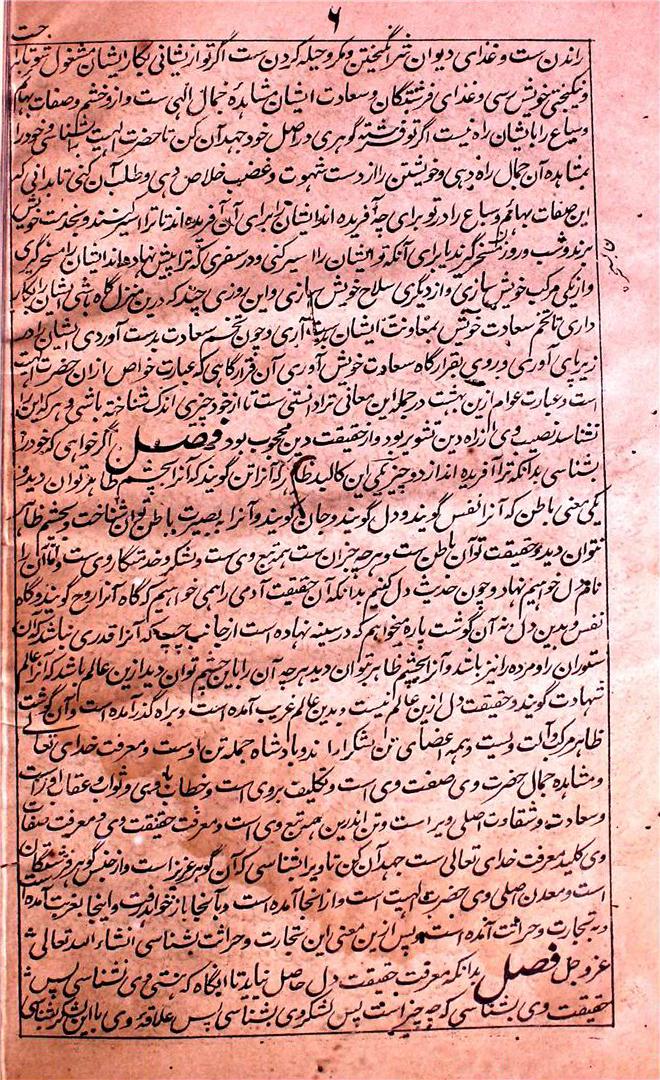 ۶
جت
راندن ست و غذای دیوان شر انگیختن و مکر و حیله کردن ست اگر تو ازیشانی بکار ایشان مشغول شو تا براحت
و نیکبختی خویش رسی و غذای فرشتگان و سعادت ایشان مشاهدۀ جمال الهی ست و از و خشم و صفات بهائم
و سباع را بایشان راه نیست اگر تو فرشته گوهری در اصل خود جهد آن کن تا حضرت الهیت را بشناسی و خود را
بمشاهده آن جمال راه دهی و خویشتن را از دست شهوت و غضب خلاص دهی و طلب آن کنی تا بدانی که
این صفات بهائم و سباع را در تو برای چه آفریده اند ایشان را برای آن آفریده اند تا ترا اسیر کنند و بخدمت خویش
برند و شب و روز سخره گیرند یا برای آنکه تو ایشان را اسیر کنی و در سفری که ترا پیش نهاده اند ایشان را سخره گیری
و از یکی مرکب خویش سازی و از دیگری سلاح خویش سازی و این روزی چند که درین منزل گاه باشی ایشان را بکار
داری تا تخم سعادت خویش بمعاونت ایشان بدست آری و چون تخم سعادت بدست آوردی ایشان را در
زیر پای آوری و روی بقرارگاه سعادت خویش آوری آن قرارگاهی که عبارت خواص ازان حضرت الهیت
است و عبارت عوام ازین بهشت در جمله این معانی ترا دانستنی ست تا از خود چیزی اندک شناخته باشی و هر که این را
نشناسد نصیب وی از راه دین تشویر بود و از حقیقت دین محجوب بود فصل اگر خواهی که خود را
بشناسی بدانکه ترا آفریده اند از دو چیز یکی این کالبد ظاهر که آنرا تن گویند که آنرا بچشم ظاهر توان دید و
یکی معنی باطن که آنرا نفس گویند و دل گویند و جان گویند و آنرا به بصیرت باطن توان شناخت و بچشم ظاهر
نتوان دید و حقیقت تو آن باطن ست و هر چه جز آن ست همه تبع وی ست و لشکر و خدمتگار وی ست و ما آن را
نام دل خواهیم نهاد و چون حدیث دل کنیم بدانکه آن حقیقت آدمی را همی خواهیم که گاه آنرا روح گویند و گاه
نفس و بدین دل نه آن گوشت پاره میخواهیم که در سینه نهاده است از جانب چپ که آنرا قدری نباشد که آن
ستوران را و مرده را نیز باشد و آنرا بچشم ظاهر بتوان دید هر چه آن را باین چشم توان دید ازین عالم باشد که آنرا عالم
شهادت گویند و حقیقت دل ازین عالم نیست و بدین عالم غریب آمده است و براه گذر آمده است و آن گوشت
ظاهر مرکب و آلت ویست و همه اعضای تن لشکر اویند و پادشاه جمله تن اوست و معرفت خدای تعالی
و مشاهده جمال حضرت وی صفت وی است و تکلیف بروی است و خطاب با وی و ثواب و عقاب او راست
و سعادت و شقاوت اصلی ویراست و تن اندرین همه تبع وی است و معرفت حقیقت وی و معرفت صفات
وی کلید معرفت خدای تعالی ست جهد آن کن تا ویرا بشناسی که آن گوهر عزیز است و از جنس گوهر فرشتگان
است و معدن اصلی وی حضرت الهیت است و از انجا آمده است و بآنجا باز خواهد رفت و اینجا بغربت آمده است
و به تجارت و حراثت آمده است و پس ازین معنی این تجارت و حراثت بشناسی انشاء الله تعالی
عز و جل فصل بدانکه معرفت حقیقت دل حاصل نیاید تا آنگاه که هستی وی بشناسی پس
حقیقت وی بشناسی که چه چیز است پس لشکر وی بشناسی پس علاقه وی با این لشکر بشناسی